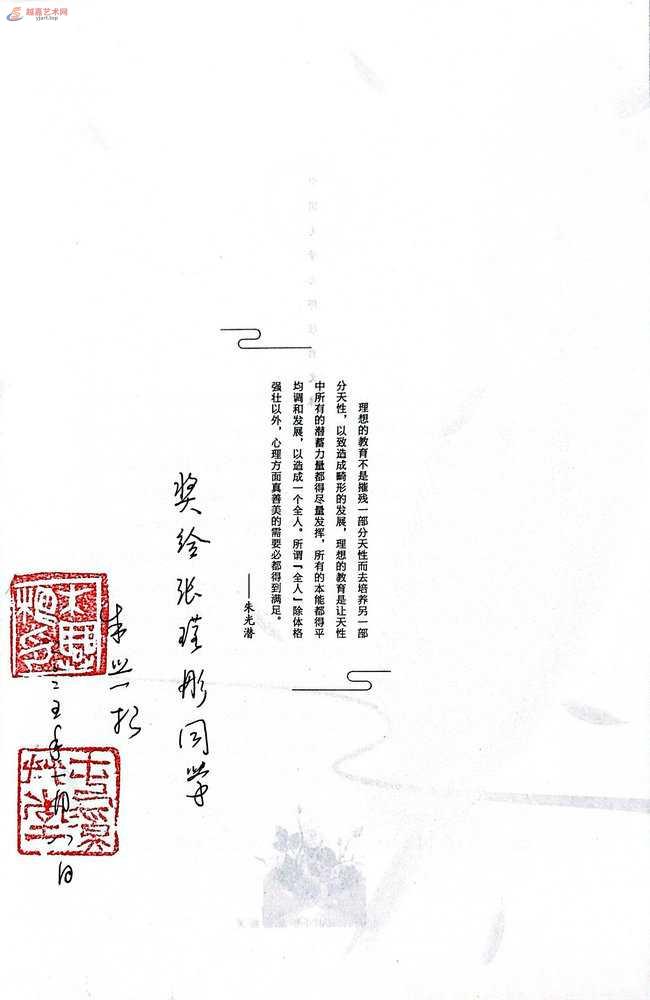 越嘉艺术网
yjart.top
理想的教育不是摧残一部分天性而去培养另一部
分天性，以致造成畸形的发展，理想的教育是让天性
中所有的潜蓄力量都得尽量发挥，所有的本能都得平
均调和发展，以造成一个全人。所谓「全人」除体格
强壮以外，心理方面真善美的需要必都得到满足。
——朱光潜
奖给张瑾彤同学